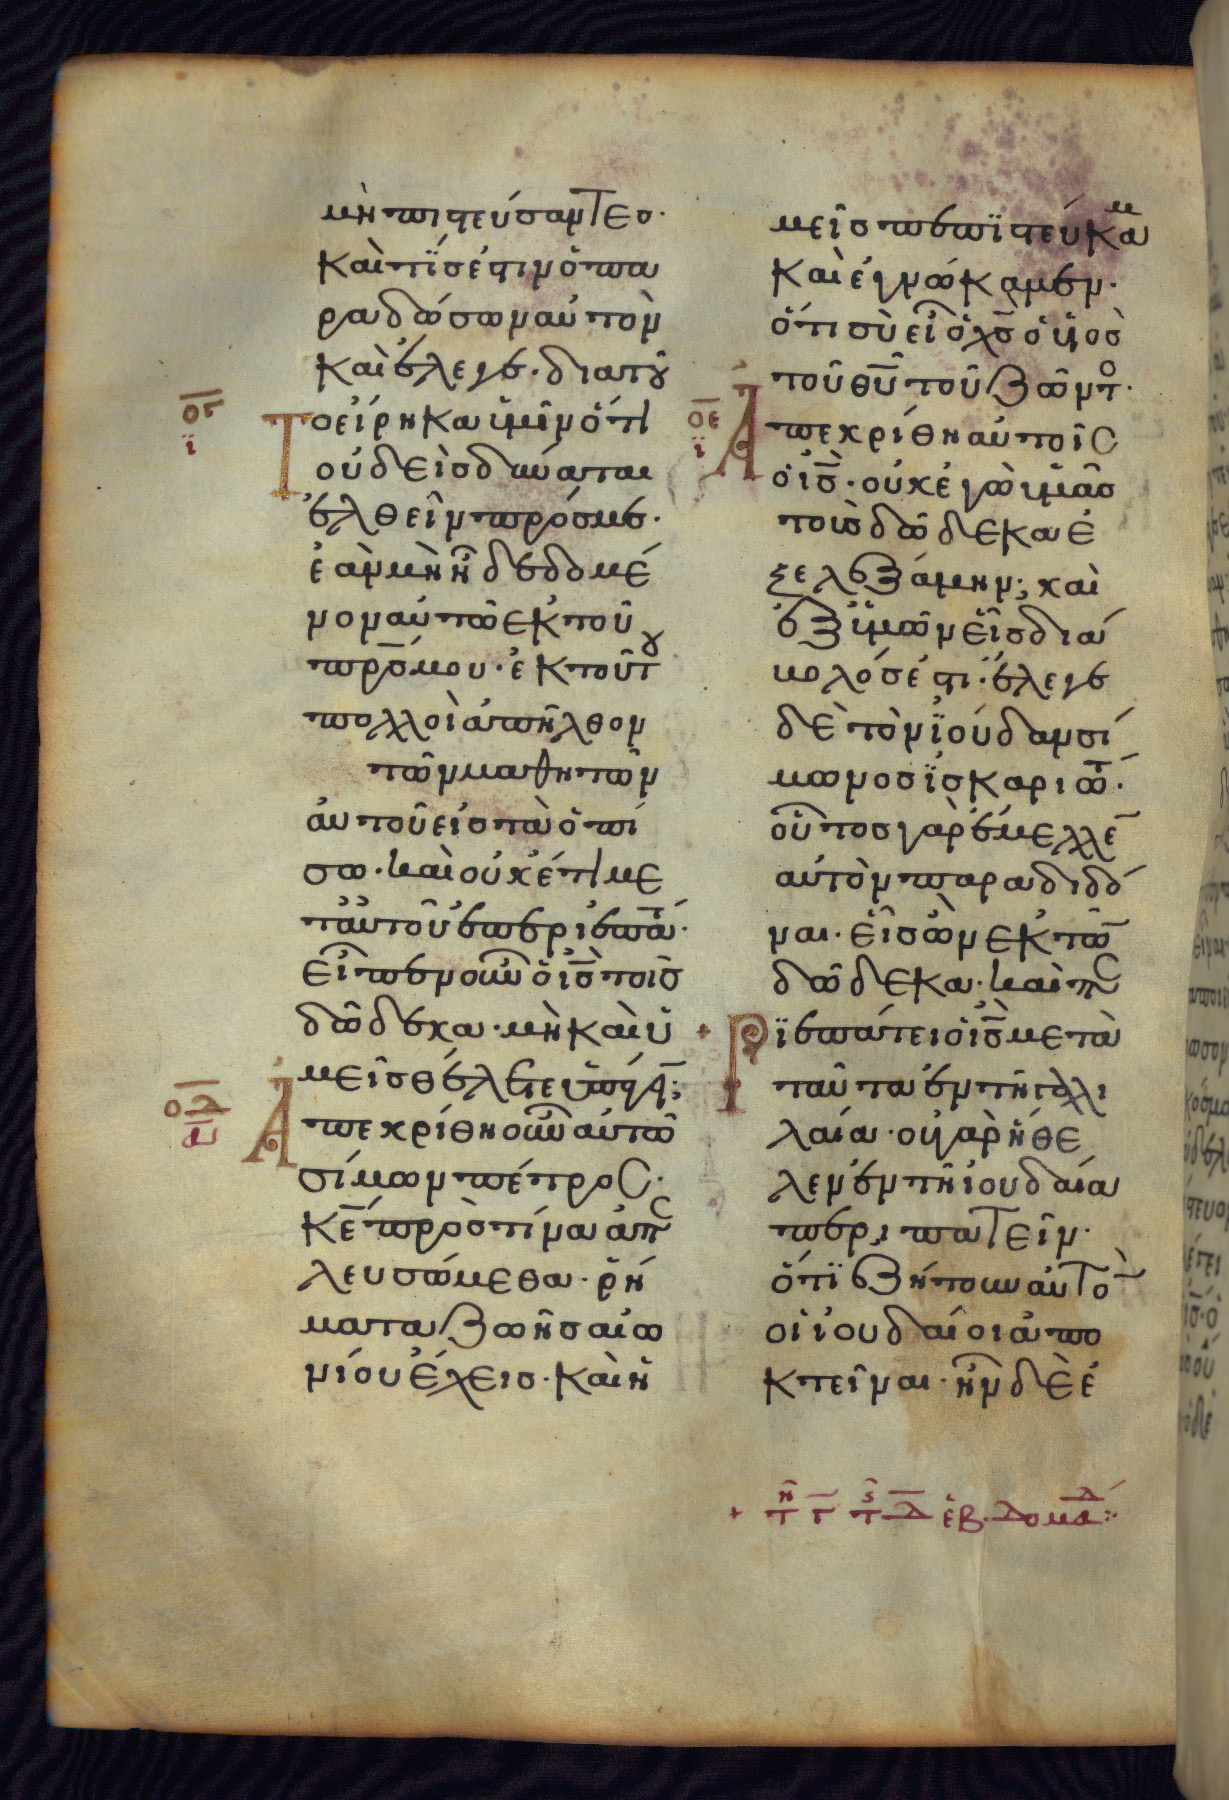 μὴ πιστεύσαντεσ·
καὶ τίσ ἐστιν ὁ πα
ραδώσων αὐτὸν
καὶ ἔλεγε· διατοῦ
Το εἴρηκα ὑμῖν ὅτι
οὐδεὶσ δύναται
ἐλθεῖν πρόσ με·
ἐὰν μὴ ἦ δεδομέ
νον αὐτῶ ἐκ τοῦ
πρ̅σ μου· ἐκ τούτου
πολλοὶ ἀπῆλθον
τῶν μαθητῶν
αὐτοῦ εἰσ τὰ ὀπί
σω· καὶ οὐκέτι με
τ' αὐτοῦ περιεπάτ·
εἶπεν οὖν ὁ ι̅σ τοῖσ
δώδεκα· μὴ καὶ ὑ
μεῖσ θέλετε ὑπάγ;
Ἀπεκρίθη οὖν αὐτῶ
σίμων πέτροσ·
κ̅ε πρὸσ τίνα ἀπε
λευσώμεθα· ῥή
ματα ζωῆσ αἰω
νίου ἔχεισ· καὶ ἡ
ογ
ι
οδ
α
μεῖσ πεπϊστεύκαμ
καὶ ἐγνώκαμεν·
ὅτι σὺ εἶ ὁ χ̅σ ὁ υἱὸσ
τοῦ θ̅υ τοῦ ζῶντο·
Ἀπεκρίθη αὐτοῖσ
ὁ ι̅σ· οὐκ ἐγὼ ὑμᾶσ
τοὺσ δώδεκα ἐ
ξελεξάμην; καὶ
ἐξ ὑμῶν εἷσ διά
βολόσ ἐστι· ἔλεγε
δὲ τὸν ἰούδαν σί
μωνοσ ἰσκαριώτ·
οὗτοσ γὰρ ἔμελλε̅
αὐτὸν παραδιδό
ναι· εἷσ ὢν ἐκ τῶ̅
δώδεκα· καὶ πε
Ρϊεπάτει ὁ ι̅σ μετὰ
ταῦτα ἐν τῆ γαλι
λαία· οὐ γὰρ ἤθε
λεν ἐν τῆ ἰουδαία
περιπατεῖν·
ὅτϊ ζήτουν αὐτὸ̅
οἱ ἰουδαίοι ἀπο
κτεῖναι· ἦν δὲ ἐ
οε
ι
+ τη γ τς δ ἑβδομαδ